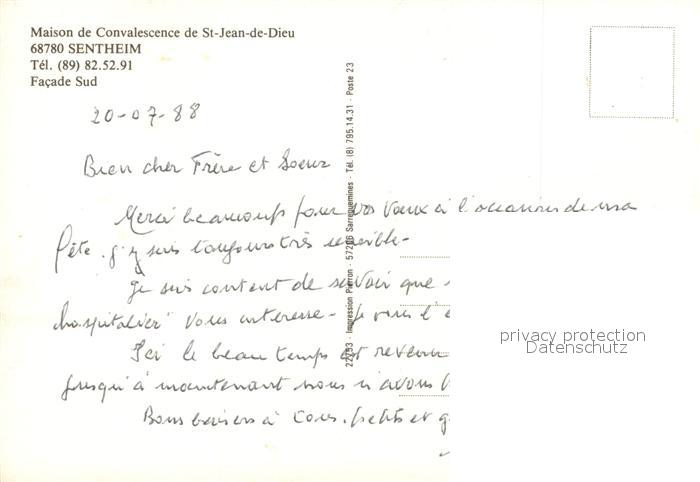 Maison de Convalescence de St-Jean-de-Dieu
68780 SENTHEIM
Tél. (89) 82.52.91
Façade Sud
20-07-88
Bien cher Frère et Soeur
Merci beaucoup pour vos voeux à l'occasion de ma
fête. j'y suis toujours très sensible-
Je suis content de savoir que
hospitalier" vous intéresse- Je vous l'e
Ici le beau temps est revenu
jusqu'à maintenant nous n'avons
Bons baisers à tous. petits et g
22793 - Impression Pierron - 57206 Sarreguemines - Tél. (8) 795.14.31 - Poste 23
privacy protection
Datenschutz